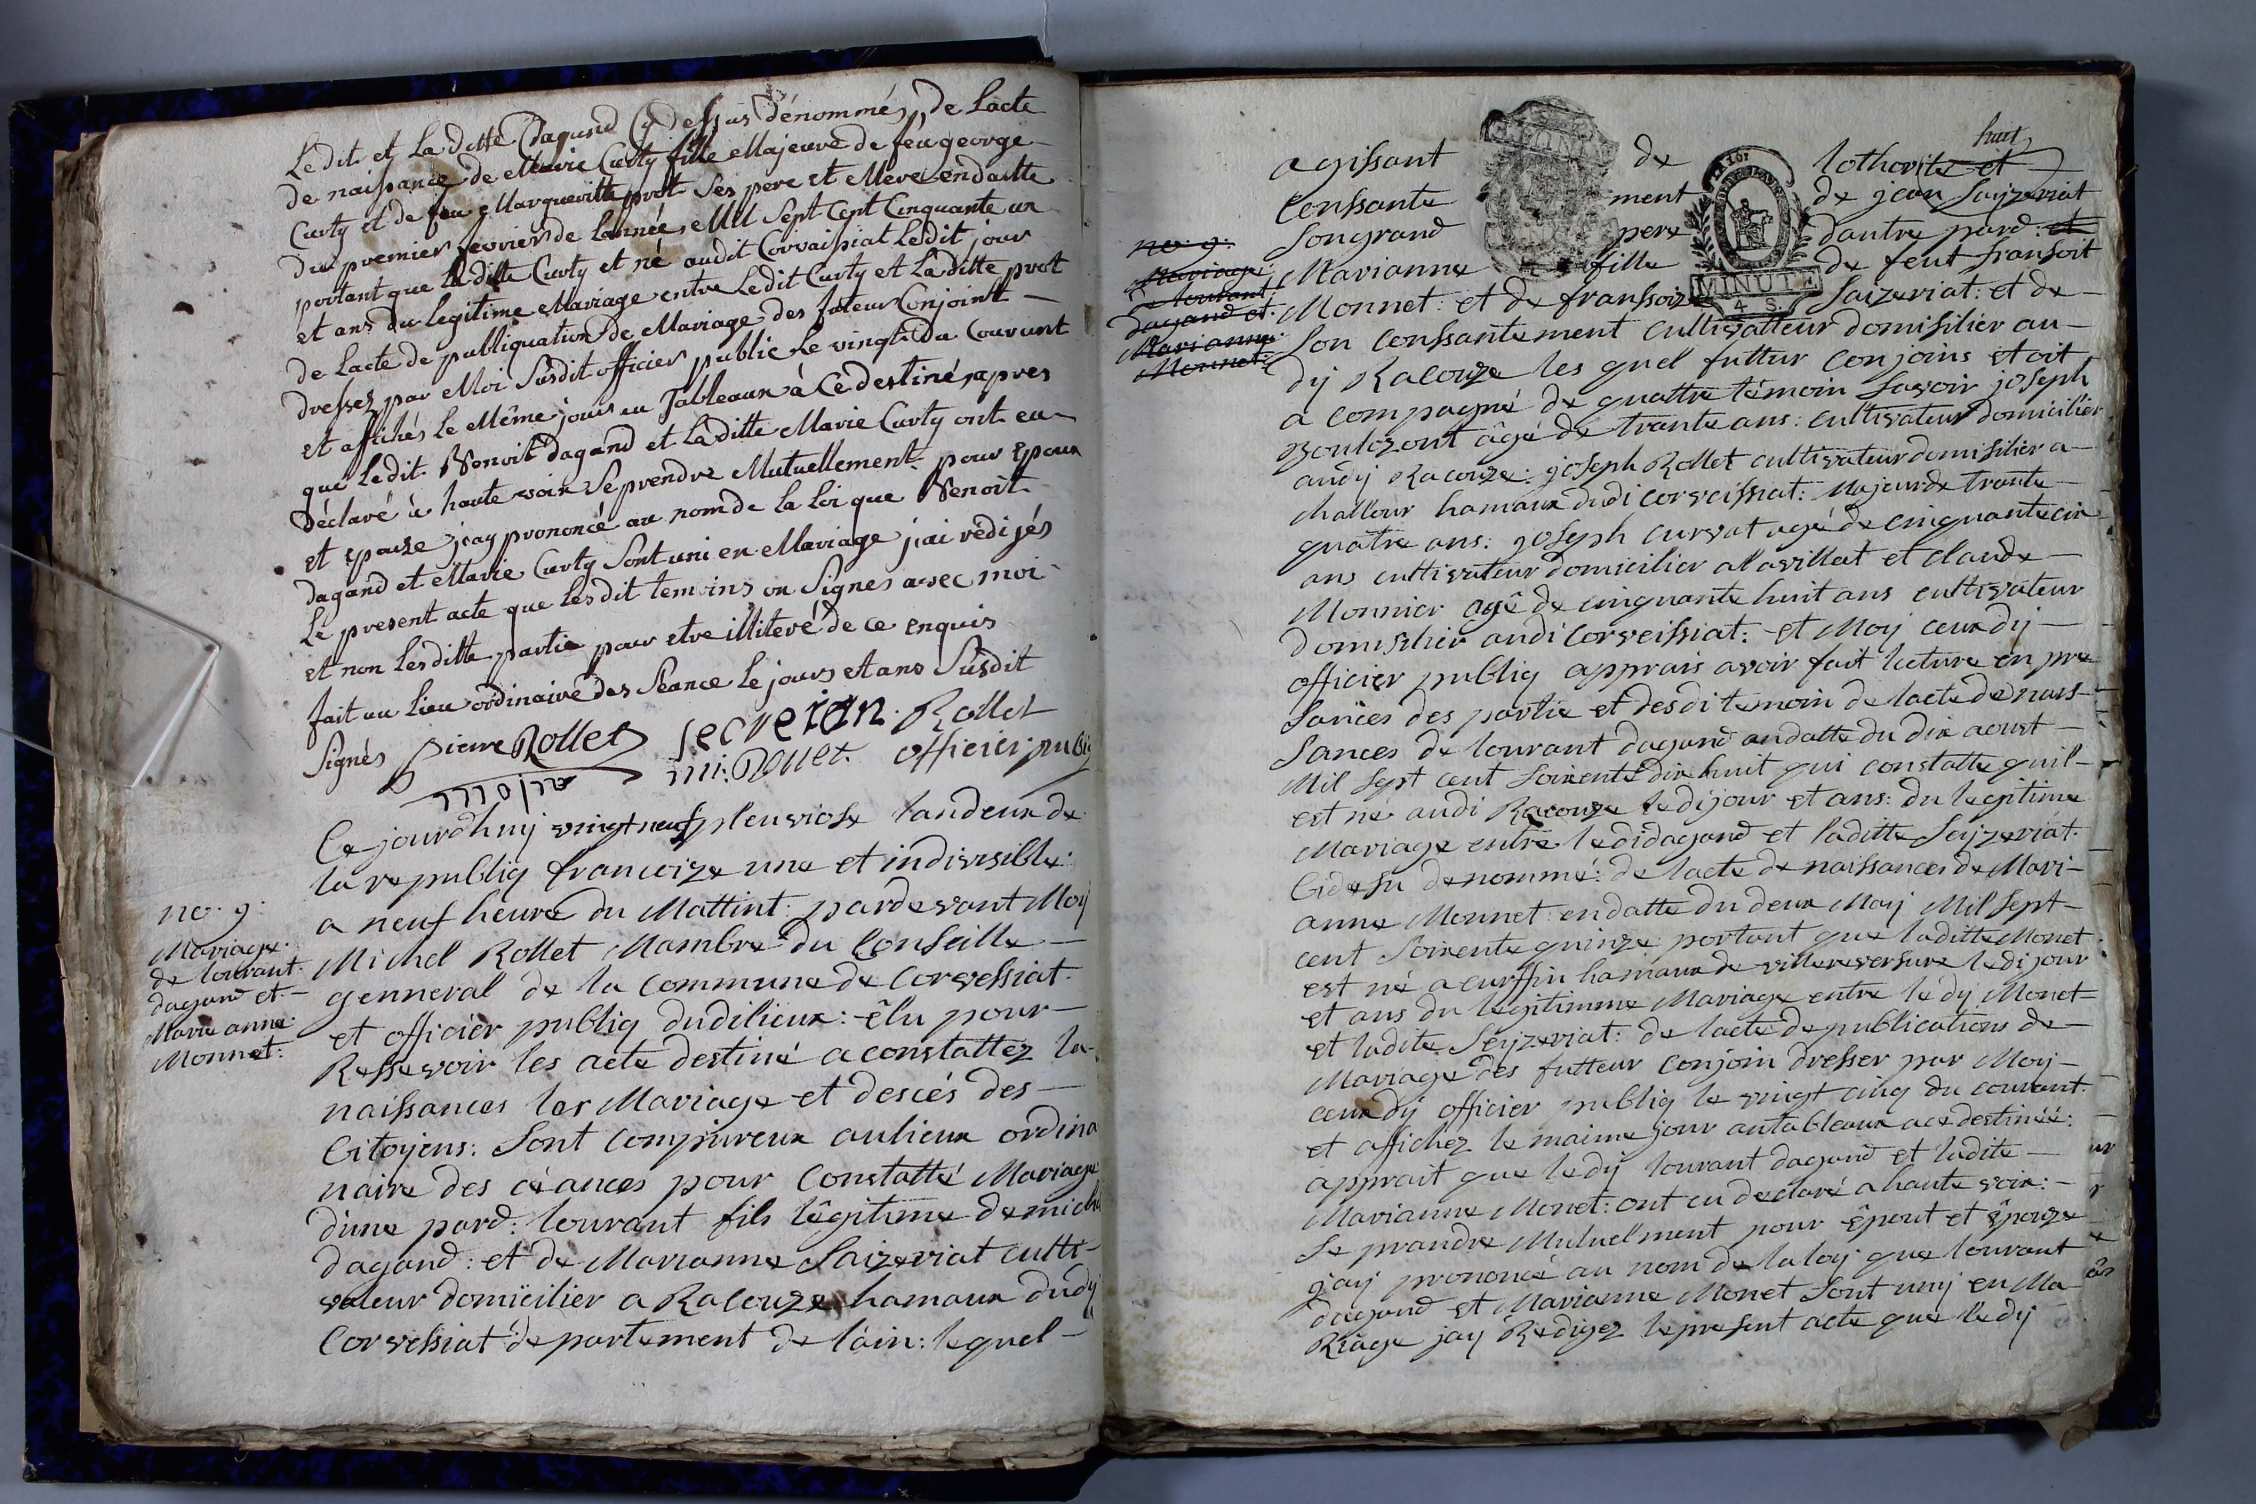 Ledit et La ditte Dagand Cy dessus dénommés, de Lacte
de naissance de Marie Curty fille Majeure de feu george
Curty et de feu Margueritte prost Ses pere et Mere endatte
du premier fevrier de Lannée Mil Sept Cent Cinquante un
portant que Laditte Curty et né audit Corvaissiat Ledit jour
et ans du legitime Mariage entre Ledit Curty et La ditte prost
de Lacte de publiquation de Mariage des futeur Conjoint
dressez par Moi Susdit officier public Le vingt du Courant
et affichés Le Même jour au Tableaux à Ce destiné, apres
que Ledit Benoit dagand et Laditte Marie Curty ont eu
Déclaré à haute voix Se prendre Mutuellement pour Epoux
et Epouse j'ay prononcé au nom de La Loi que Benoit
dagand et Marie Curty Sont uni en Mariage j'ai rédigés
Le present acte que Lesdit temoins on Signes avec moi
et non Lesditte partie pour etre illiteré de ce enquis
fait au Lieu ordinaire des Séance Le jours et ans Susdit
Signés pierre Rollet Secretan Rollet
mi: Rollet officier public
no. 9.
Mariage
de lourant
dagand et
Marie anne
Monnet:
Ce jourdhuij vingt neuf pleuviose landeux de
la republiq francoize une et indivisible:
a neuf heure du Mattint: pardevant Moij
Michel Rollet Mambre du Conseille
genneral de la Commune de Corvessiat
et officier publiq dudilieux: êlu pour
Ressevoir les acte destiné a constattez la
naissances les Mariage et descés des
Citoyens: Sont Compareux aulieux ordina
naire des céances pour Constatté Mariage
d'une pard: lourant fils légitime de michel
dagand: et de Marianne Saizeriat culti-
vateur domicilier a Racouze hamaux dudy
Corvessiat département de l'ain: lequel
huit
agissant de lothorite et
Conssante ment de jean Saizeriat
Son grand pere d'autre pard: et
no. 9.
Mariage
de lourant
dagand et
Marianne
Monnet:
LA LOI
MINUTE
4 S.
Marianne fille de feut fransoit
Monnet: et de franssoize Saizeriat: et de
Son Conssantement Cultivatteur domisilier au
dij Racouze les quel futtur Conjoins etoit
a compagné de quattre témoin Savoir joseph
Boulezont âgé de trante ans: cultivateur domicilier
audij Racouze: joseph Rollet cultivateur domisilier a
challour hamaux dudi corveissiat: Majeur de trante
quatre ans: joseph curvat agé de cinquante cin
ans cultivateur domicilier a lavillat et claude
Monnier agé de cinquante huit ans cultivateur
domisilier audi Corveissiat: et Moij ceux dij
officier publiq apprais avoir fait lecture en pre
Sances des partie et desdi temoin de lacte de nais-
Sances de lourant dagand andatte du dix aoust
Mil Sept cent Soixente dix huit qui constatte quil
est né audi Racouze ledijour et ans: du legitime
Mariage entre ledidagand et laditte Seijzeriat
Cidessu denommé: de lacte de naissances de Mari-
anne Monnet: endatte du deux Maij Mil Sept
cent Soixente quinze portant que laditte Monet
est né a curffin hamaux de villereversure ledijour
et ans du legitimme Mariage entre le dij Monet
et ladite Seijzeriat: de lacte de publications de
Mariage des futteur conjoin dresser par Moij
ceux dij officier publiq le vingt cinq du courant
et affichez le maime jour autableaux ace destinéé:
apprait que ledij lourant dagand et ladite
Marianne Monet: ont eu declaré a haute voix:
Se prandre Mutuelment pour êpout et êpouze
jaij prononcé au nom de la loij que lourant
dagand et Marianne Monet Sont unij en Ma
Riage jaij Redigez le present acte que ledij